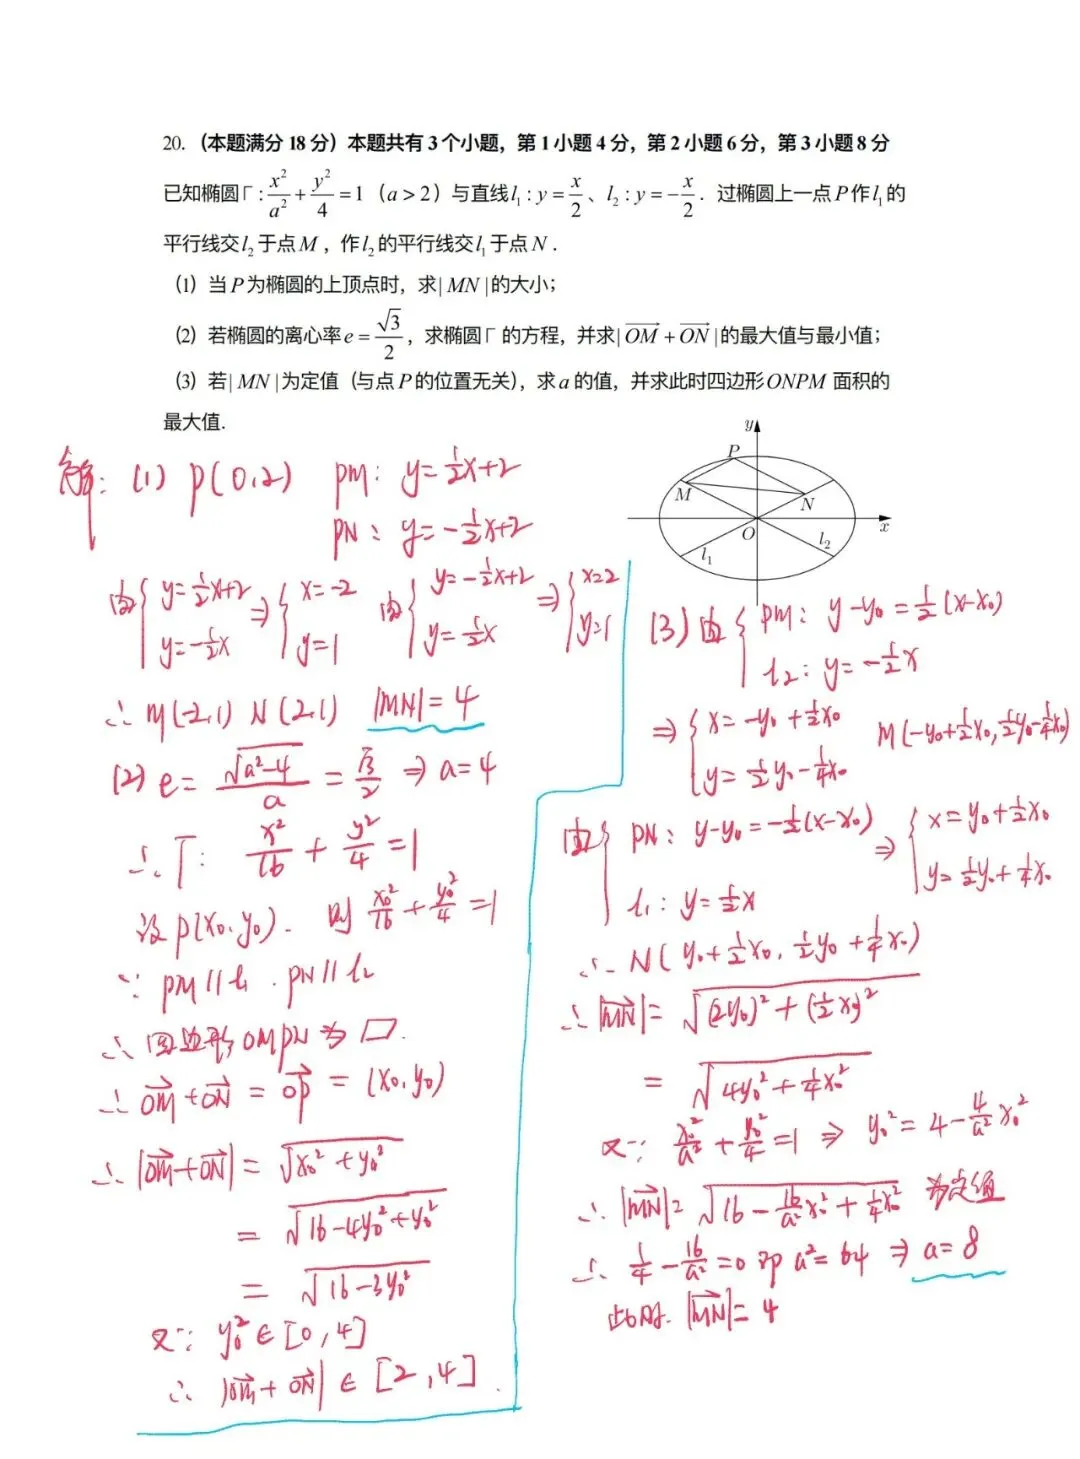 20. （本题满分 18 分）本题共有 3 个小题，第 1 小题 4 分，第 2 小题 6 分，第 3 小题 8 分
已知椭圆Γ: x²/a² + y²/4 = 1（a > 2）与直线 l₁: y = x/2、l₂: y = -x/2．过椭圆上一点 P 作 l₁ 的
平行线交 l₂ 于点 M，作 l₂ 的平行线交 l₁ 于点 N．
（1）当 P 为椭圆的上顶点时，求| MN |的大小；
（2）若椭圆的离心率 e = √3/2，求椭圆Γ 的方程，并求| OM + ON |的最大值与最小值；
（3）若| MN |为定值（与点 P 的位置无关），求 a 的值，并求此时四边形 ONPM 面积的
最大值.
y
P
M
N
O
x
l₁
l₂
解: (1) P(0,2) PM: y=½x+2
PN: y=-½x+2
由{y=½x+2 y=-½x ⇒ {x=-2 y=1 由{y=-½x+2 y=½x ⇒ {x=2 y=1
∴ M(-2,1) N(2,1) |MN|=4
(2) e= √(a²-4)/a = √3/2 ⇒ a=4
∴ Γ: x²/16 + y²/4 =1
设 P(x₀,y₀). 则 x₀²/16 + y₀²/4 =1
∵ PM∥l₁ . PN∥l₂
∴ 四边形OMPN为▱.
∴ OM+ON = OP = (x₀,y₀)
∴ |OM+ON| = √(x₀²+y₀²)
= √(16-4y₀²+y₀²)
= √(16-3y₀²)
又∵ y₀² ∈ [0,4]
∴ |OM+ON| ∈ [2,4].
(3) 由{PM: y-y₀=½(x-x₀)
l₂: y=-½x
⇒ {x=-y₀+½x₀ y=½y₀-¼x₀ M(-y₀+½x₀, ½y₀-¼x₀)
由{PN: y-y₀=-½(x-x₀) l₁: y=½x ⇒ {x=y₀+½x₀ y=½y₀+¼x₀
∴ N(y₀+½x₀, ½y₀+¼x₀)
∴ |MN|= √((2y₀)²+(½x₀)²)
= √(4y₀²+¼x₀²)
又∵ x₀²/a² + y₀²/4 =1 ⇒ y₀²=4-4/a² x₀²
∴ |MN|= √(16-16/a² x₀²+¼x₀²) 为定值
∴ ¼-16/a²=0 即 a²=64 ⇒ a=8
此时. |MN|=4